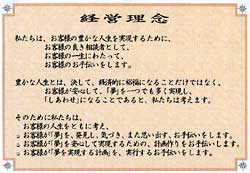 経営理念
私たちは、お客様の豊かな人生を実現するために、
お客様の良き相談者として、
お客様の一生にわたって、
お客様のお手伝いをします。
豊かな人生とは、決して、経済的に裕福になることだけではなく、
お客様が安心して、「夢」を一つでも多く実現し、
「しあわせ」になることであると、私たちは考えます。
そのために私たちは、
お客様の人生をともに考え、
お客様が「夢」を、発見し、気づき、また思い出す、お手伝いをします。
お客様が「夢」を安心して実現するための、計画作りをお手伝いします。
お客様が「夢を実現する計画」を、実行するお手伝いをします。